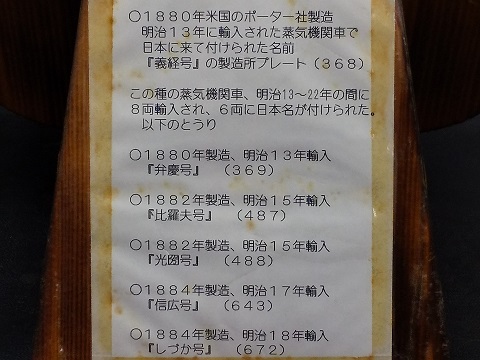 ○1880年米国のポーター社製造
明治13年に輸入された蒸気機関車で
日本に来て付けられた名前
『義経号』の製造所プレート(368)
この種の蒸気機関車、明治13~22年の間に
8両輸入され、6両に日本名が付けられた。
以下のとうり
○1880年製造、明治13年輸入
『弁慶号』 (369)
○1882年製造、明治15年輸入
『比羅夫号』 (487)
○1882年製造、明治15年輸入
『光圀号』 (488)
○1884年製造、明治17年輸入
『信広号』 (643)
○1884年製造、明治18年輸入
『しづか号』 (672)